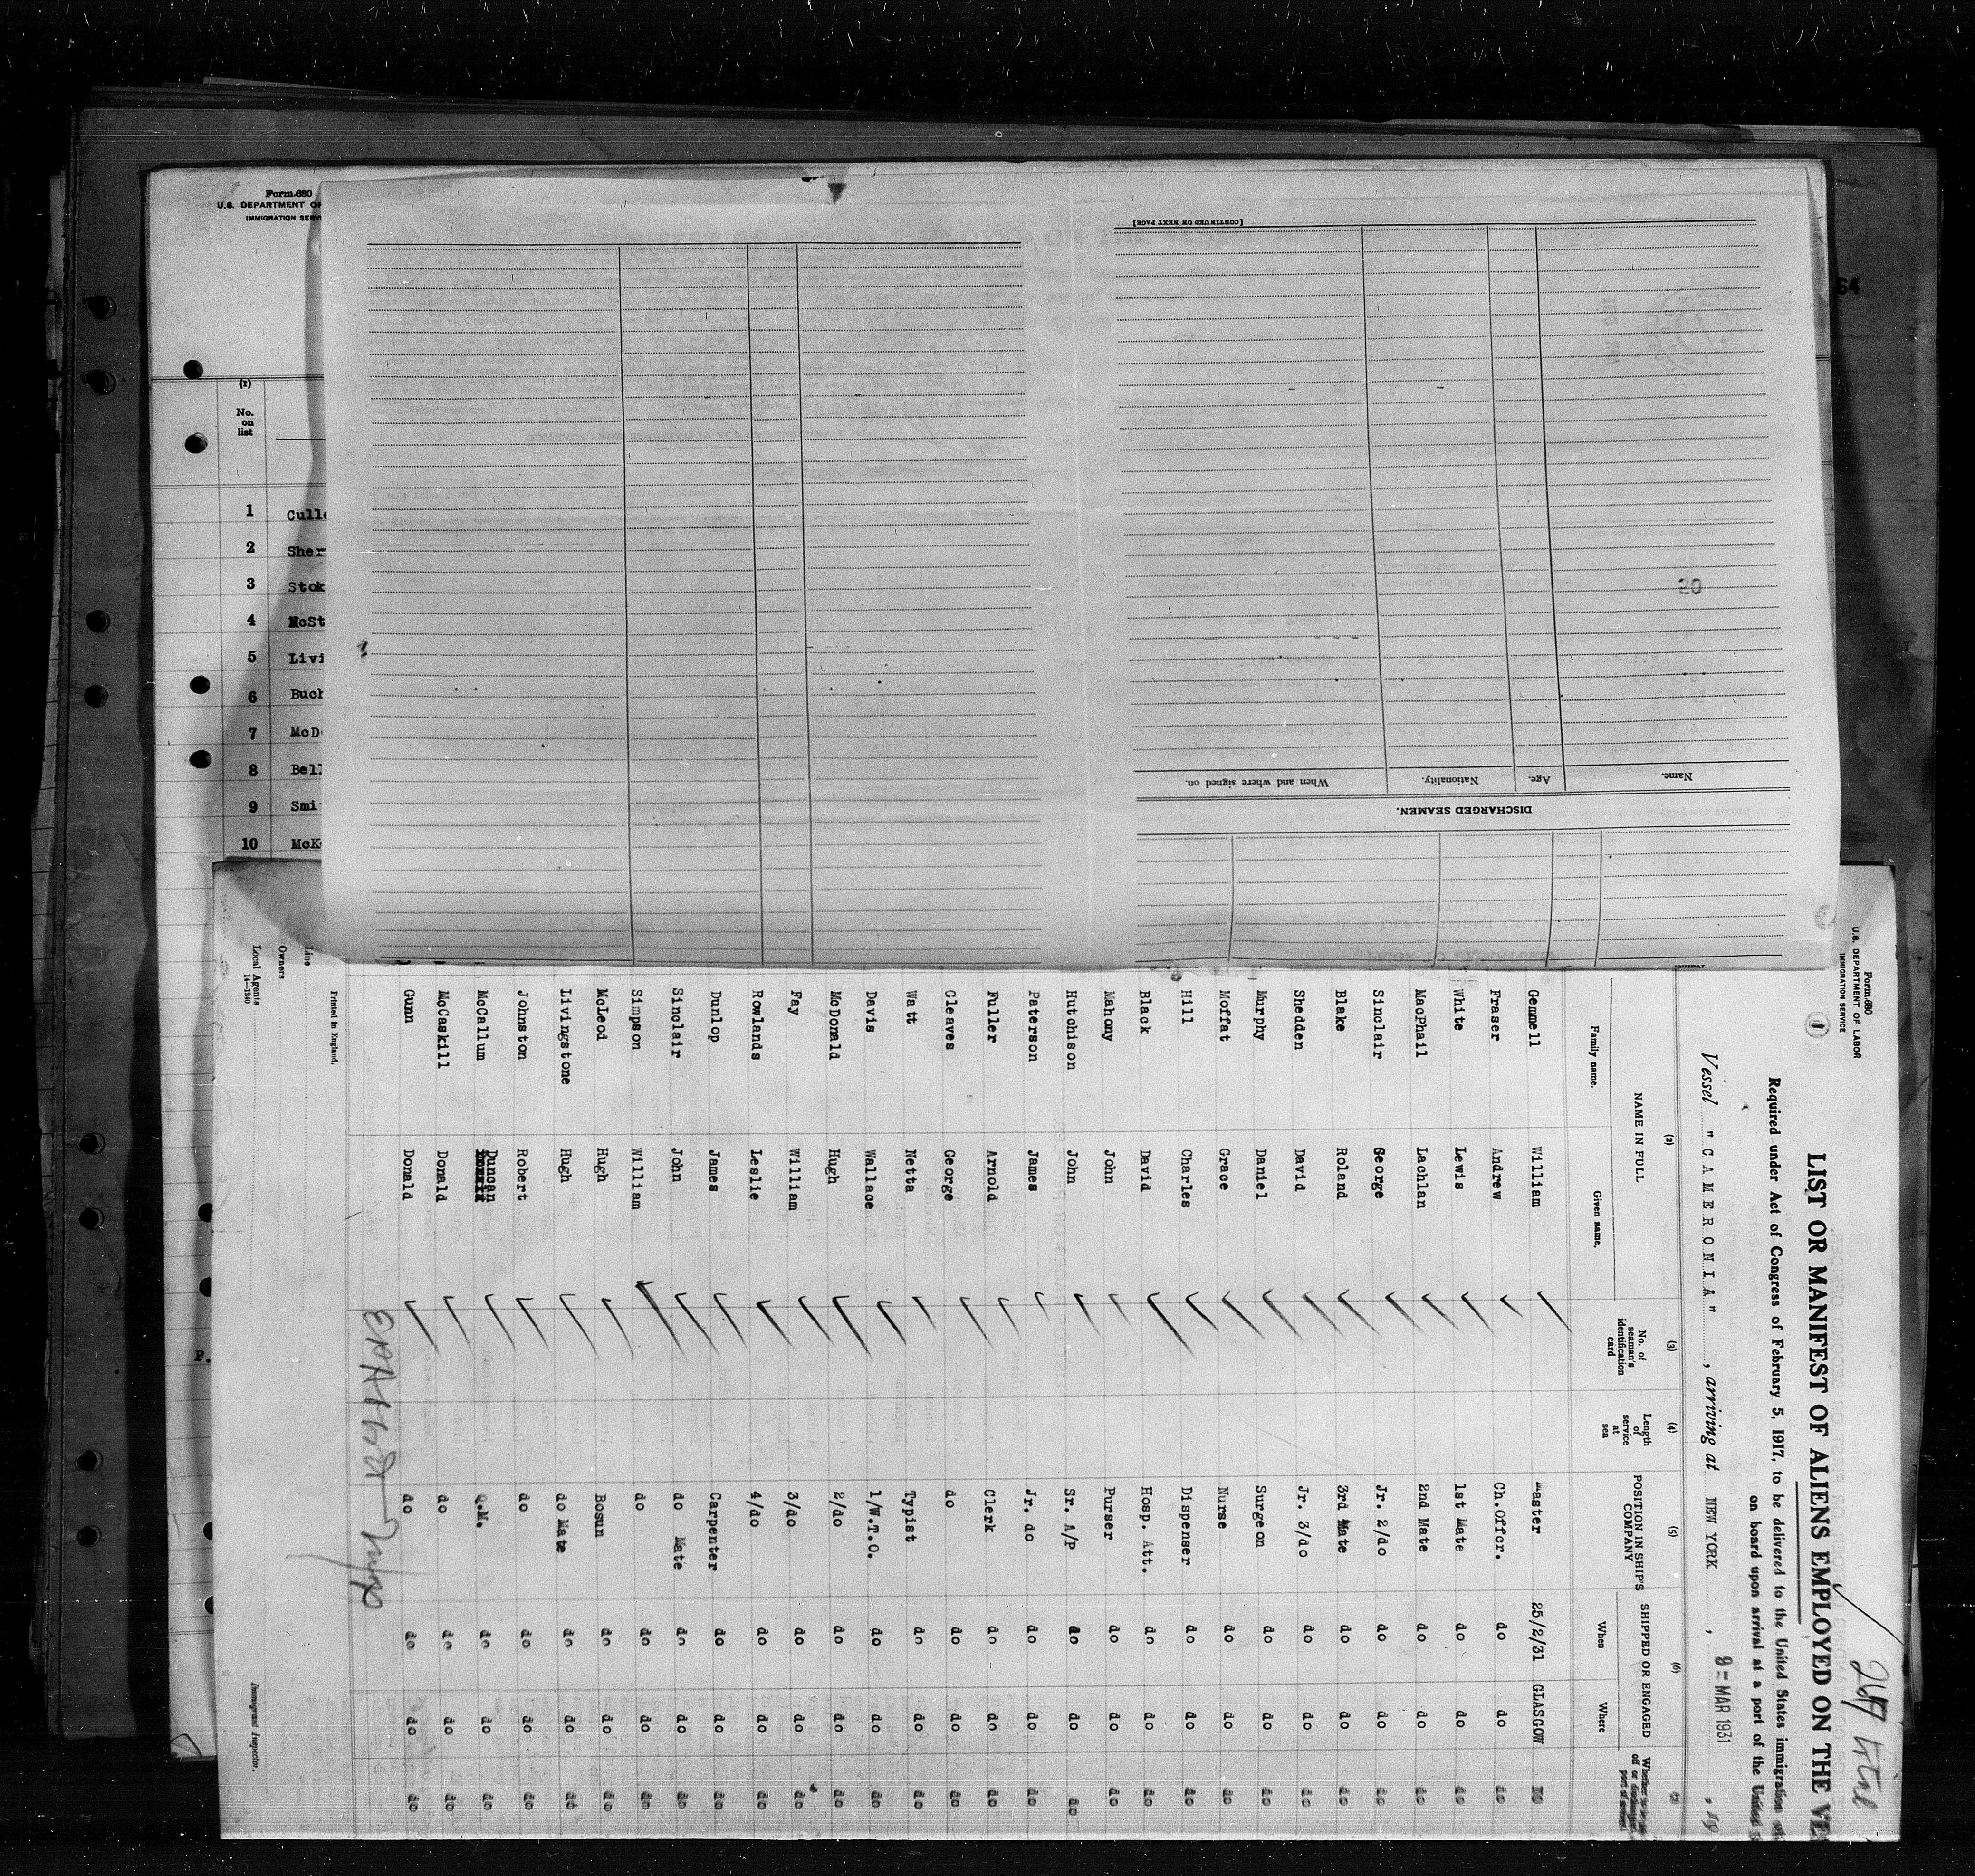 Form 680
U.S. DEPARTMENT OF
IMMIGRATION SERV
(1)
No.
on
list
1 Culle
2 Sher
3 Stok
4 McSt
5 Livi
6 Buch
7 McD
8 Bell
9 Smi
10 McK
P.
64
[CONTINUED ON NEXT PAGE]
20
When and where signed on.
Nationality.
Age.
Name.
DISCHARGED SEAMEN.
Form 680
U.S. DEPARTMENT OF LABOR
IMMIGRATION SERVICE
1
267 total
LIST OR MANIFEST OF ALIENS EMPLOYED ON THE VE
Required under Act of Congress of February 5, 1917, to be delivered to the United States immigration
on board upon arrival at a port of the United S
Vessel "CAMERONIA", arriving at NEW YORK, 9 - MAR 1931, 19
(2) (3) (4) (5) (6)
NAME IN FULL
Family name. Given name.
No. of seaman's identification card
Length of service at sea
POSITION IN SHIP'S COMPANY
SHIPPED OR ENGAGED
When Where
Gemmell William Master 25/2/31 GLASGOW NO
Fraser Andrew Ch.Offcr. do do do
White Lewis 1st Mate do do do
MacPhail Lachlan 2nd Mate do do do
Sinclair George Jr. 2/do do do do
Blake Roland 3rd Mate do do do
Shedden David Jr. 3/do do do do
Murphy Daniel Surgeon do do do
Moffat Grace Nurse do do do
Hill Charles Dispenser do do do
Black David Hosp. Att. do do do
Mahony John Purser do do do
Hutchison John Sr. A/P do do do
Paterson James Jr. do do do do
Fuller Arnold Clerk do do do
Cleaves George do do do do
Watt Netta Typist do do do
Davis Wallace 1/W.T.O. do do do
McDonald Hugh 2/do do do do
Fay William 3/do do do do
Rowlands Leslie 4/do do do do
Dunlop James Carpenter do do do
Sinclair John do Mate do do do
Simpson William do do do do
McLeod Hugh Bosun do do do
Livingstone Hugh do Mate do do do
Johnston Robert do do do do
McCallum Duncan Q.M. do do do
McCaskill Donald do do do do
Gunn Donald do do do do
Printed in England.
Line
Owners
Local Agents
14—1240
Immigrant Inspector.